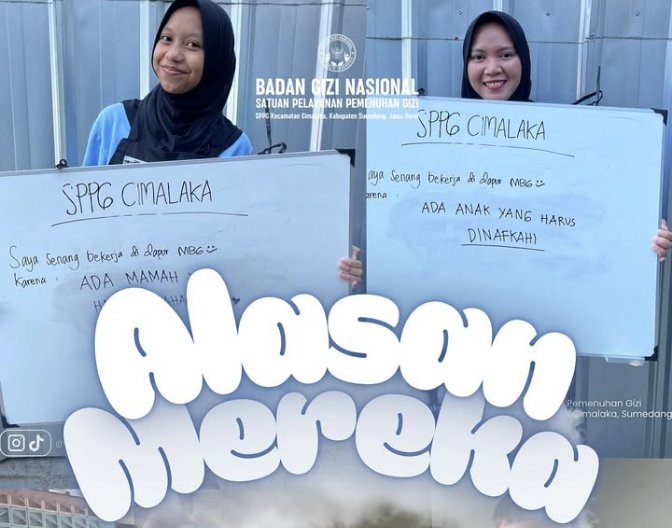 BADAN GIZI NASIONAL
SATUAN PELAYANAN PEMENUHAN GIZI
SPPG Kecamatan Cimalaka, Kabupaten Sumedang, Jawa Barat
SPPG CIMALAKA
Saya Senang bekerja di dapur MBG
Karena :
ADA MAMAH
SPPG CIMALAKA
aya Senang bekerja di dapur MBG
karena :
ADA ANAK YANG HARUS
DINAFKAHI
Alasan
Mereka
Pemenuhan Gizi
Cimalaka, Sumedang